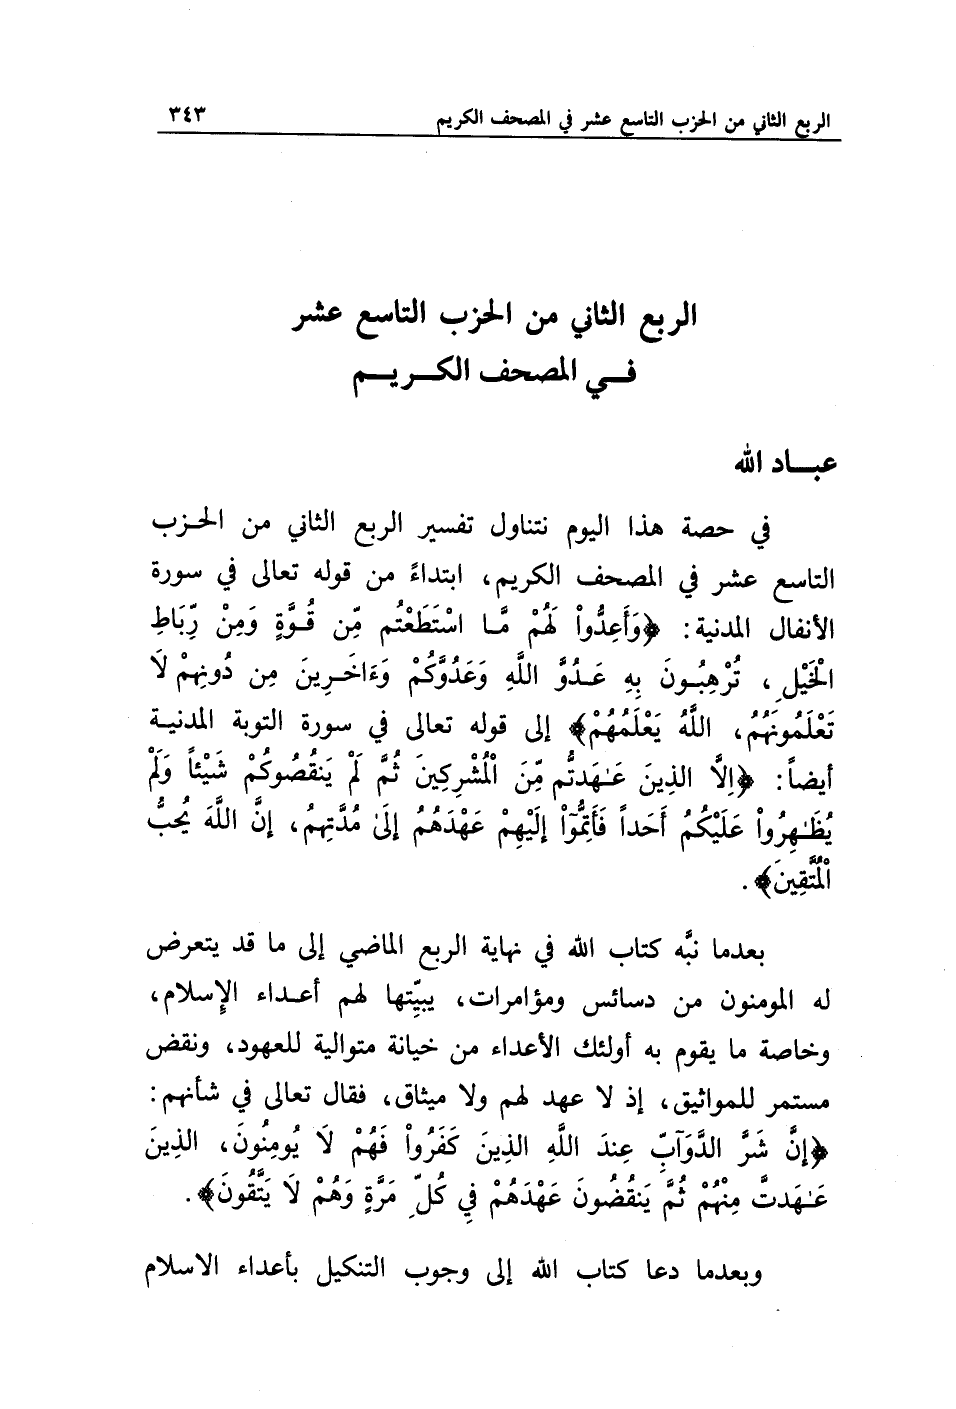 الربع الثاني من الحزب التاسع عشر في المصحف الكريم ٣٤٣
الربع الثاني من الحزب التاسع عشر
فــي المصحف الكــريــم
عبــاد الله
في حصة هذا اليوم نتناول تفسير الربع الثاني من الحـزب
التاسع عشر في المصحف الكريم، ابتداءً من قوله تعالى في سورة
الأنفال المدنية: ﴿وَأَعِدُّواْ لَهُمْ مَّـا اسْتَطَعْتُم مِّن قُـوَّةٍ وَمِنْ رِّبَاطِ
الْخَيْلِ، تُرْهِبُـونَ بِهِ عَـدُوَّ اللَّهِ وَعَدُوَّكُمْ وَءَاخَـرِينَ مِن دُونِهِمْ لَا
تَعْلَمُونَهُمُ، اللَّهُ يَعْلَمُهُمْ﴾ إلى قوله تعالى في سورة التوبة المدنيـة
أيضاً: ﴿إِلَّا الذِينَ عَـٰهَدتُّم مِّنَ الْمُشْرِكِينَ ثُمَّ لَمْ يَنقُصُوكُمْ شَيْئاً وَلَمْ
يُظَـٰهِرُواْ عَلَيْكُمُ أَحَداً فَأَتِمُّوٓاْ إِلَيْهِمْ عَهْدَهُمُ إِلَىٰ مُدَّتِهِمُ، إِنَّ اللَّهَ يُحِبُّ
الْمُتَّقِينَ﴾.
بعدما نبَّه كتاب الله في نهاية الربع الماضي إلى ما قد يتعرض
له المومنون من دسائس ومؤامرات، يبيِّتها لهم أعـداء الإسلام،
وخاصة ما يقوم به أولئك الأعداء من خيانة متوالية للعهود، ونقض
مستمر للمواثيق، إذ لا عهد لهم ولا ميثاق، فقال تعالى في شأنهم:
﴿إِنَّ شَرَّ الدَّوَآبِّ عِندَ اللَّهِ الذِينَ كَفَرُواْ فَهُمْ لَا يُومِنُونَ، الذِينَ
عَـٰهَدتَّ مِنْهُمْ ثُمَّ يَنقُضُونَ عَهْدَهُمْ فِي كُلِّ مَرَّةٍ وَهُمْ لَا يَتَّقُونَ﴾.
وبعدما دعا كتاب الله إلى وجوب التنكيل بأعداء الاسلام